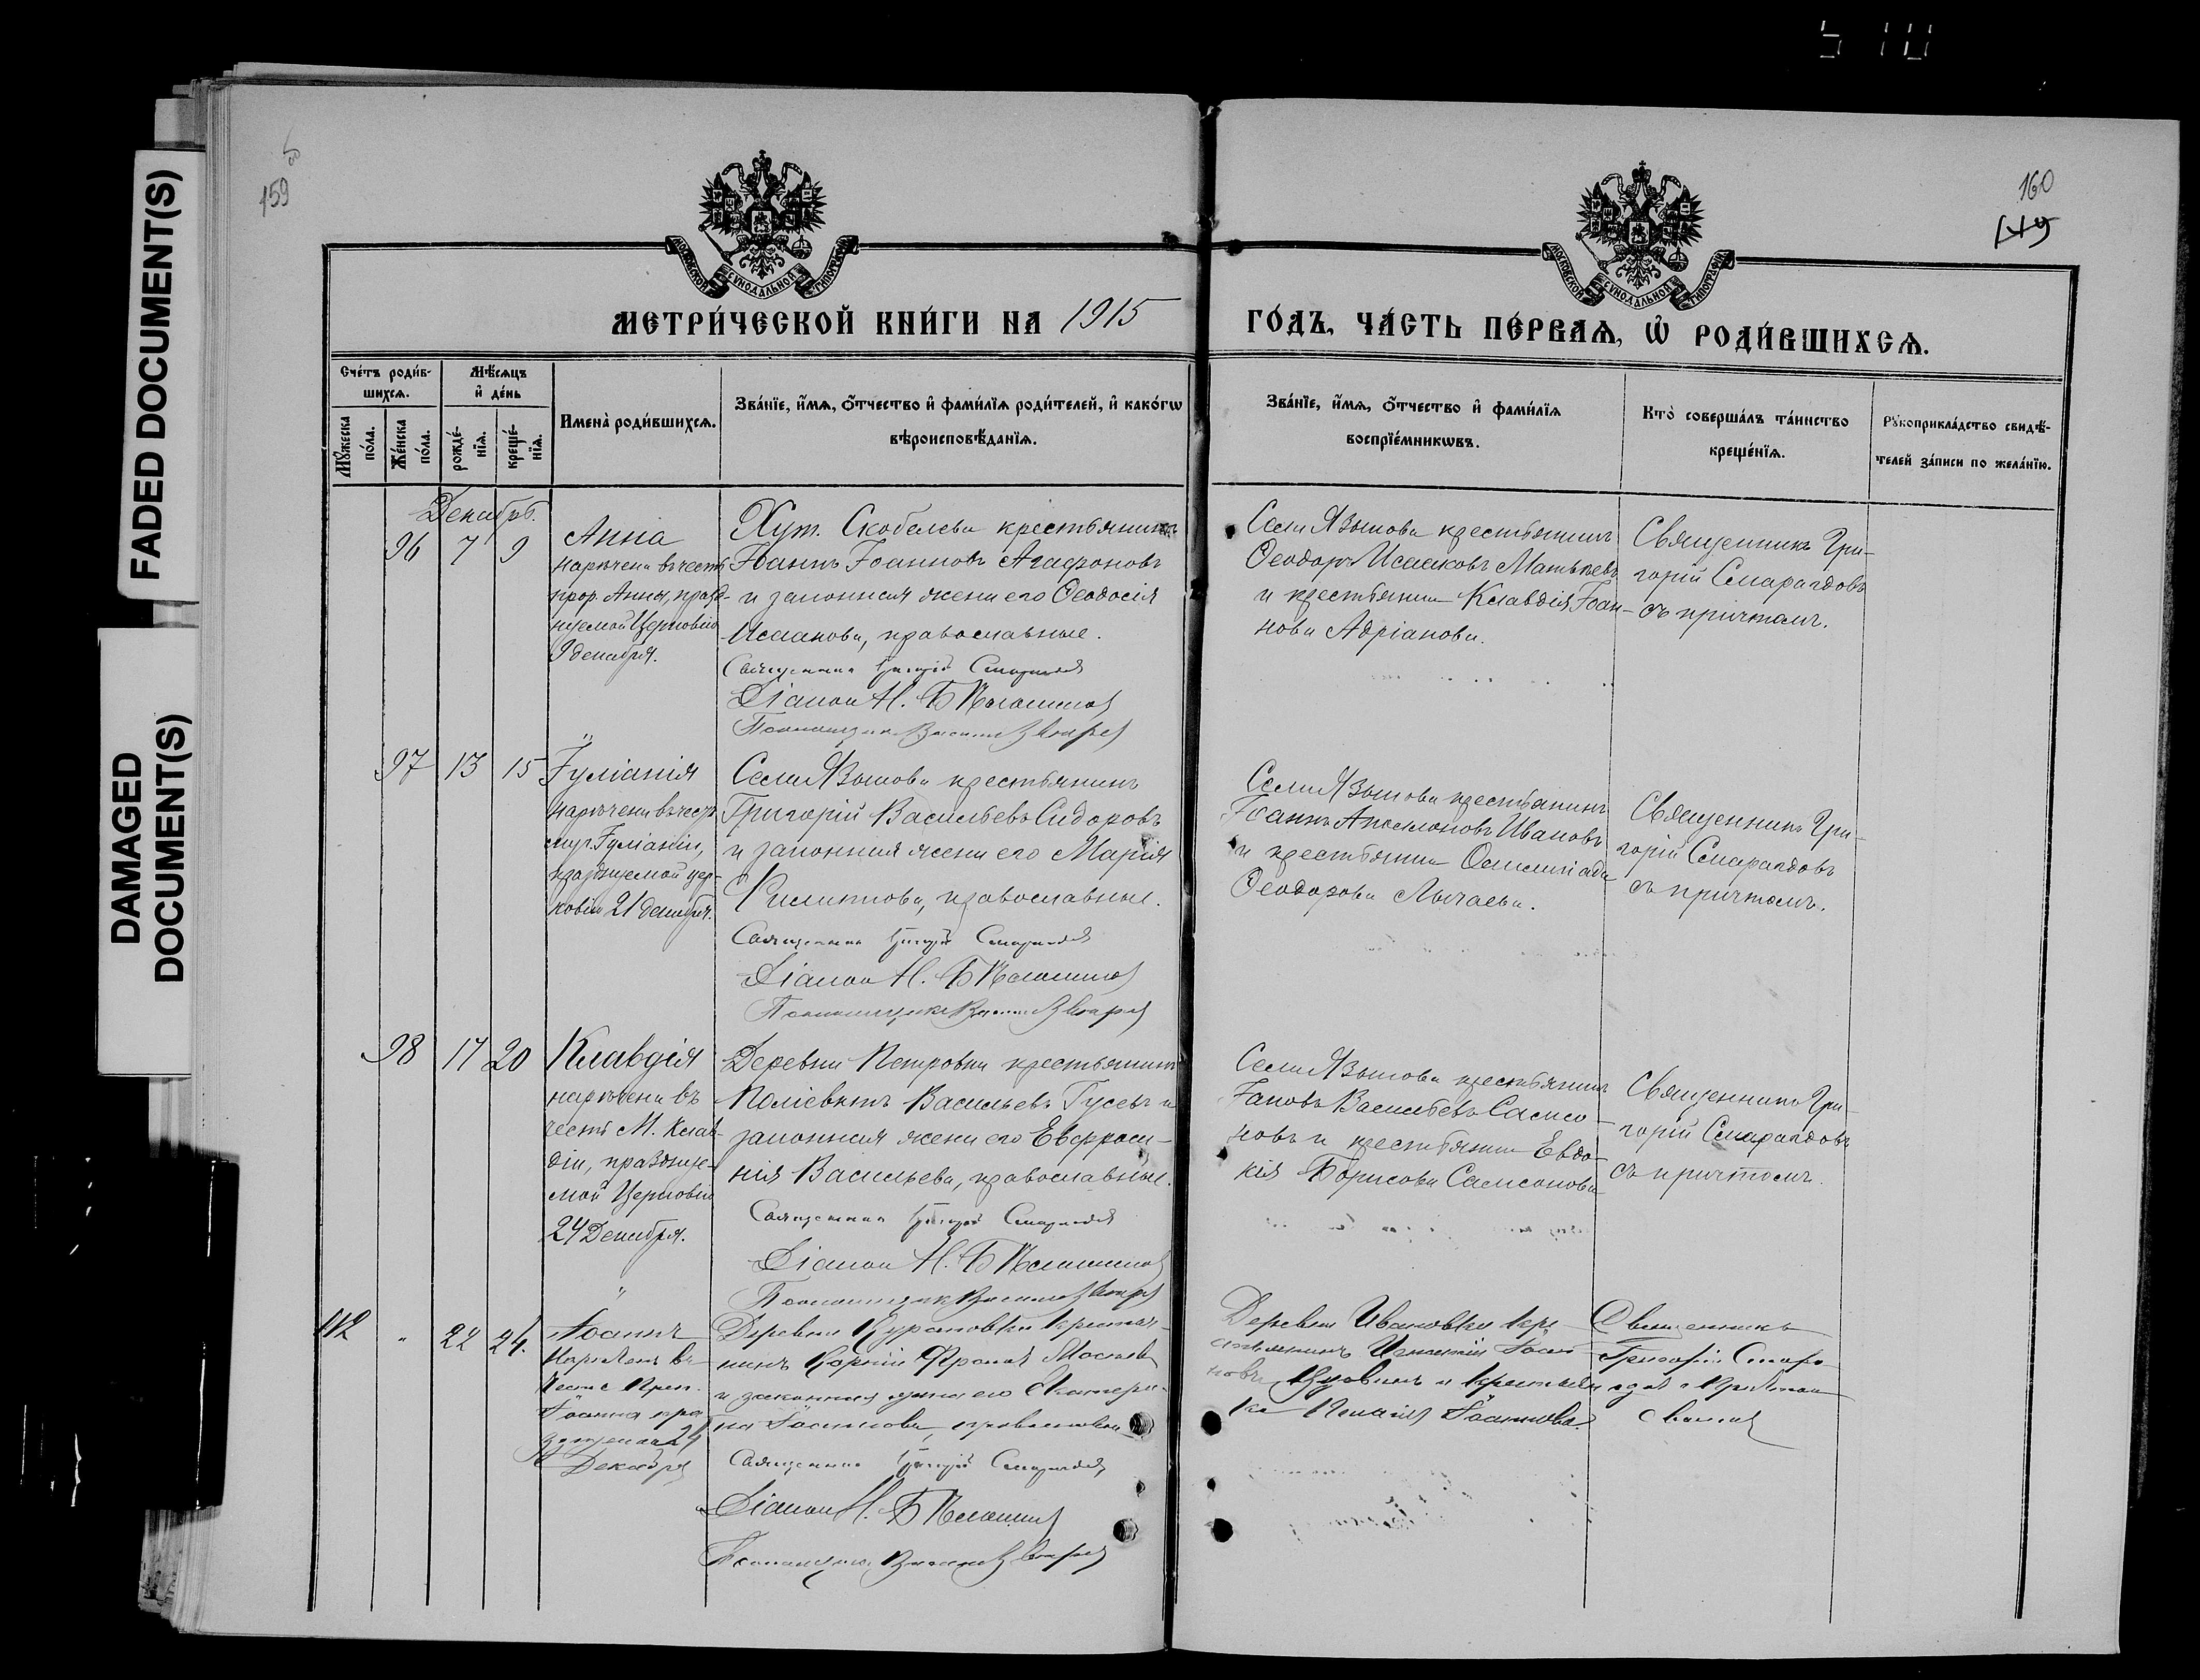 FADED DOCUMENT(S)
DAMAGED
DOCUMENT(S)
159
160
149
МОСКОВСКОЙ СУНОДАЛЬНОЙ ТИПОГРАФІИ
МОСКОВСКОЙ СУНОДАЛЬНОЙ ТИПОГРАФІИ
МЕТРИ́ЧЕСКОЙ КНИ́ГИ НА 1915
ГО́ДЪ, ЧА́СТЬ ПЕ́РВАѦ, Ѡ҆ РОДИ́ВШИХСѦ.
Сче́тъ роди́в-
шихсѧ.
Мꙋ́жеска
по́ла.
Же́нска
по́ла.
Мѣ́сѧцъ
и҆ де́нь
рожде́-
нїѧ.
креще́-
нїѧ.
Имена̀ роди́вшихсѧ.
Зва́нїе, и҆́мѧ, ѻ҆́тчество и҆ фами́лїѧ роди́телей, и҆ како́гѡ
вѣроисповѣ́данїѧ.
Зва́нїе, и҆́мѧ, ѻ҆́тчество и҆ фами́лїѧ
воспрїе́мникѡвъ.
Кто̀ соверша́лъ та́инство
креще́нїѧ.
Рꙋкоприкла́дство свидѣ́-
телей за́писи по жела́нїю.
Декабрь.
96 7 9
Анна
наречена въ честь
прор. Анны, празд-
нуемой Церковію
9 декабря.
Хут. Скобелева крестьянинъ
Іоаннъ Іоанновъ Агафоновъ
и законная жена его Ѳеодосія
Исаакова, православные.
Священникъ Григорій Смарагдовъ
Діаконъ Н.
Псаломщикъ Василій
Села Языкова крестьянинъ
Ѳеодоръ Исааковъ Матвѣевъ
и крестьянка Клавдія Іоан-
нова Адріанова.
Священникъ Гри-
горій Смарагдовъ
съ причтомъ.
97 13 15
Іуліанія
наречена въ честь
муч. Іуліаніи,
празднуемой цер-
ковію 21 декабря.
Села Языкова крестьянинъ
Григорій Васильевъ Сидоровъ
и законная жена его Марія
Филиппова, православные.
Священникъ Григорій Смарагдовъ
Діаконъ Н.
Псаломщикъ Василій
Села Языкова крестьянинъ
Іоаннъ Аполлоновъ Ивановъ
и крестьянка Олимпіада
Ѳеодорова Лычаева.
Священникъ Гри-
горій Смарагдовъ
съ причтомъ.
98 17 20
Клавдія
наречена въ
честь М. Клав-
діи, праздзнуе-
мой Церковію
24 Декабря.
Деревни Петровки крестьянинъ
Поліевктъ Васильевъ Гусевъ и
законная жена его Евфроси-
нія Васильева, православные.
Священникъ Григорій Смарагдовъ
Діаконъ Н.
Псаломщикъ Василій
Села Языкова крестьянинъ
Іаковъ Васильевъ Самсо-
новъ и крестьянка Евдо-
кія Борисова Самсонова
Священникъ Гри-
горій Смарагдовъ
съ причтомъ.
112 " 22 24.
Іоаннъ
Нареченъ въ
честь Преп.
Іоанна
Декабря
Деревни Курановки крестья-
нинъ
и законная жена его Екатери-
на Іоаннова, православные
Священникъ Григорій Смарагдовъ
Діаконъ Н.
Псаломщикъ Василій
Деревни Ивановки кре-
стьянинъ Игнатій Іоан-
новъ и крестьян
ка Іоаннова.
Священникъ
Григорій Смара-
гдовъ